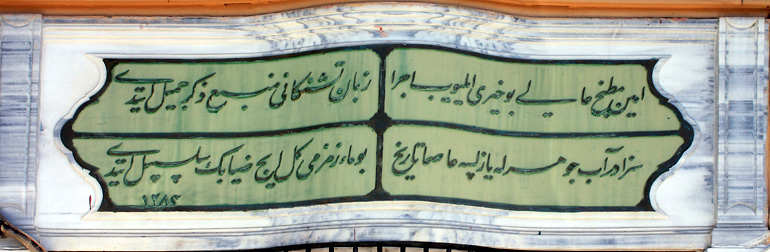 امین مطبخ عالی بو خیری ایلیوب اجرا
زبان تشنکانی منبع ذکر جمیل ایتدی
سزادر آب جوهرله یازلسه عاصما تاریخ
بو ماء زمزمی کل ایچ ضیابک سلسبیل ایتدی
١٢٨٢